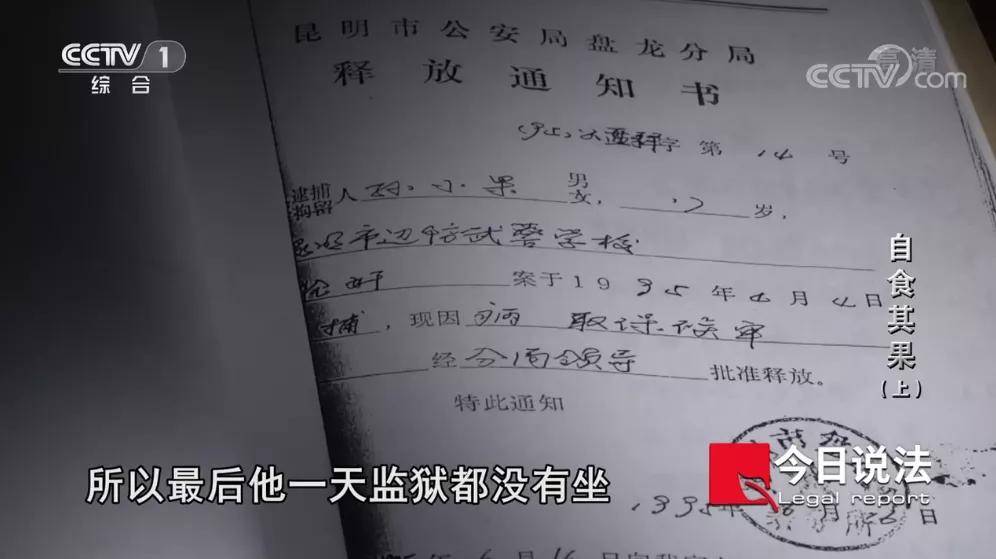 CCTV 1
综合
高清
CCTV.com
昆明市公安局盘龙分局
释放通知书
字 第 14 号
逮捕
拘留 人 孙小果 男
女, 17 岁,
昆明市边防武警学校
案于 19 95 年 4 月 4 日
捕, 现因 病 取保候审
经 分局领导 批准释放。
特此通知
1995年6月 日
自食其果
(上)
所以最后他一天监狱都没有坐
今日说法
Legal report